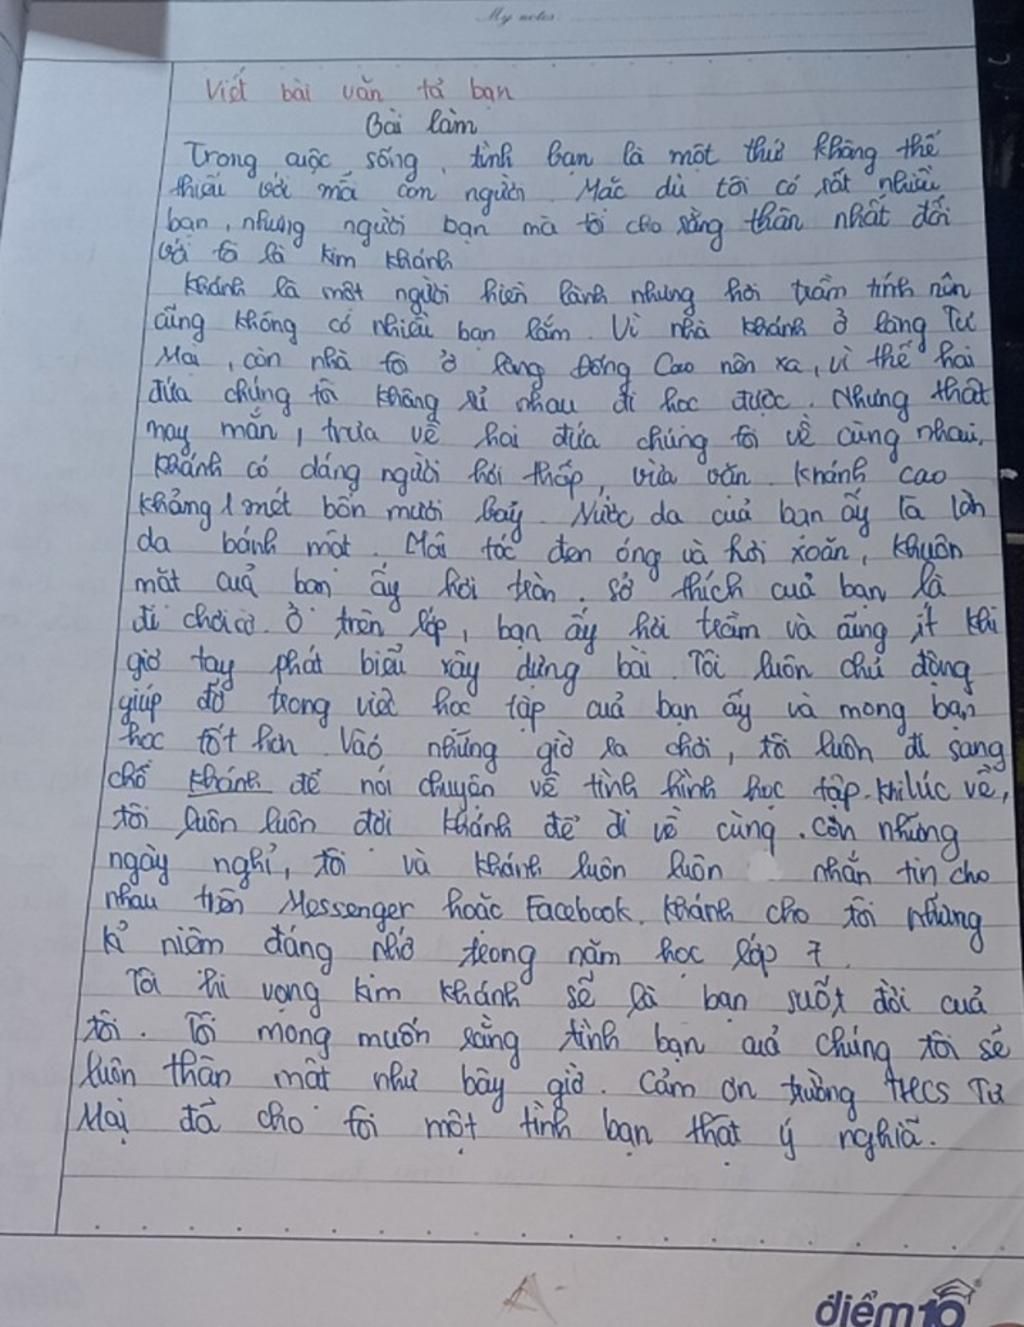 My notes
Viết bài văn tả bạn
Bài làm
Trong cuộc sống, tình bạn là một thứ không thể
thiếu với mỗi con người. Mặc dù tôi có rất nhiều
bạn, nhưng người bạn mà tôi cho rằng thân nhất đối
với tô là Kim Khánh
Khánh là một người hiền lành nhưng hơi trầm tính nên
cũng không có nhiều bạn lắm. Vì nhà Khánh ở làng Tư
Mai, còn nhà tô ở làng Đông Cao nên xa, vì thế hai
đứa chúng tô không rủ nhau đi học được. Nhưng thật
may mắn, trưa về hai đứa chúng tôi về cùng nhau.
Khánh có dáng người hơi thấp, vừa vặn. Khánh cao
khảng 1 mét bốn mươi bảy. Nước da của bạn ấy là làn
da bánh mật. Mái tóc đen óng và hơi xoăn, khuôn
mặt của bạn ấy hơi tròn. sở thích của bạn là
đi chơi cờ. Ở trên lớp, bạn ấy hơi trầm và cũng ít khi
giơ tay phát biểu xây dựng bài. Tôi luôn chủ động
giúp đỡ trong việc học tập của bạn ấy và mong bạn
học tốt hơn. Vào những giờ ra chơi, tôi luôn đi sang
chỗ Khánh để nói chuyện về tình hình học tập. Khi lúc về,
tôi luôn luôn đợi Khánh để đi về cùng. Còn những
ngày nghỉ, tôi và Khánh luôn luôn nhắn tin cho
nhau trên Messenger hoặc Facebook. Khánh cho tôi những
kỉ niệm đáng nhớ trong năm học lớp 7.
Tôi hi vọng Kim Khánh sẽ là bạn suốt đời của
tôi. Tôi mong muốn rằng tình bạn của chúng tôi sẽ
luôn thân mật như bây giờ. Cảm ơn trường THCS Tư
Mại đã cho tôi một tình bạn thật ý nghĩa.
A-
điểm 10